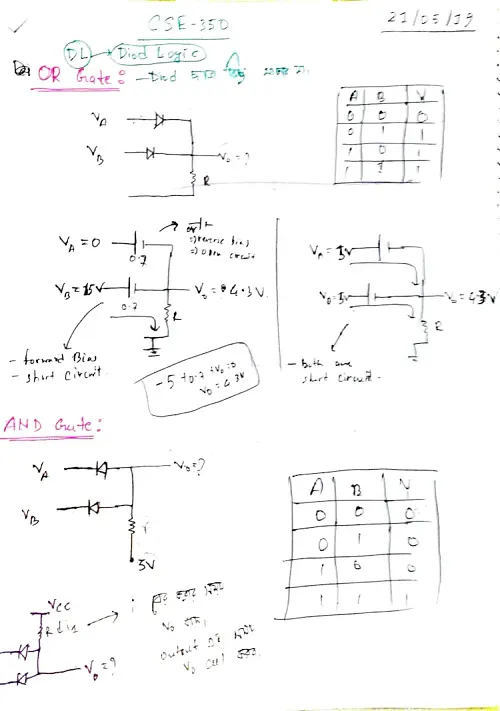 CSE-350
21/05/19
DL → Diod Logic
OR Gate: - Diod
A B V
0 0 0
0 1 1
1 0 1
1 1 1
VA
VB
Vo = ?
R
VA = 0
0.7
⇒ reverse bias
⇒ open circuit
VB = 5V
0.7
Vo = 4.3V.
R
- forward Bias
- short circuit.
-5 + 0.7 + Vo = 0
Vo = 4.3V
VA = 5V
Vo = 5V
Vo = 4.3V
R
- both are
short circuit.
AND Gate:
VA
Vo = ?
VB
r
5V
A B V
0 0 0
0 1 0
1 0 0
1 1 1
Vcc
R
Vo = ?
i
Vo
output
Vo